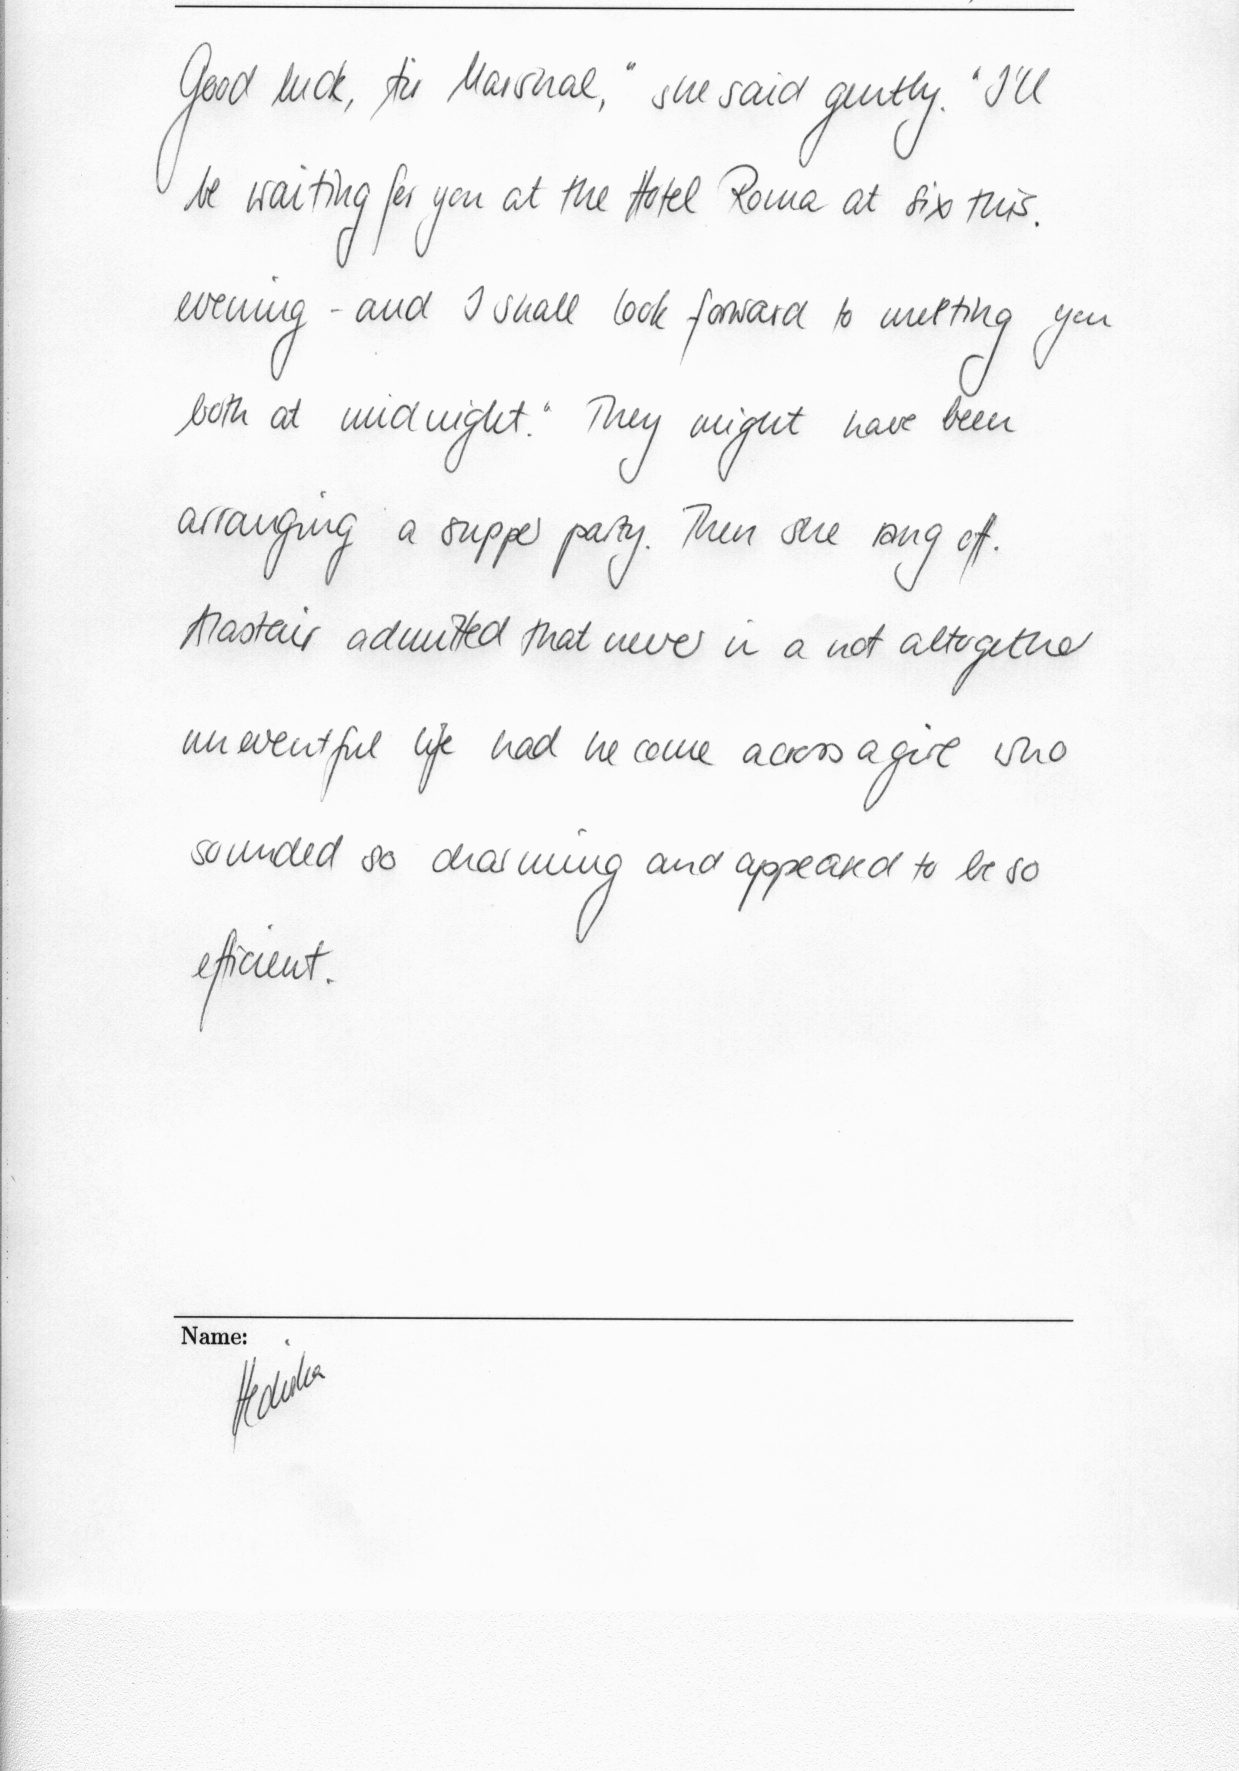 Good luck, Air Marshal," she said gently. "I'll
be waiting for you at the Hotel Roma at six this.
evening - and I shall look forward to meeting you
both at midnight." They might have been
arranging a supper party. Then she rang off.
Alastair admitted that never in a not altogether
uneventful life had he come across a girl who
sounded so charming and appeared to be so
efficient.
Name: